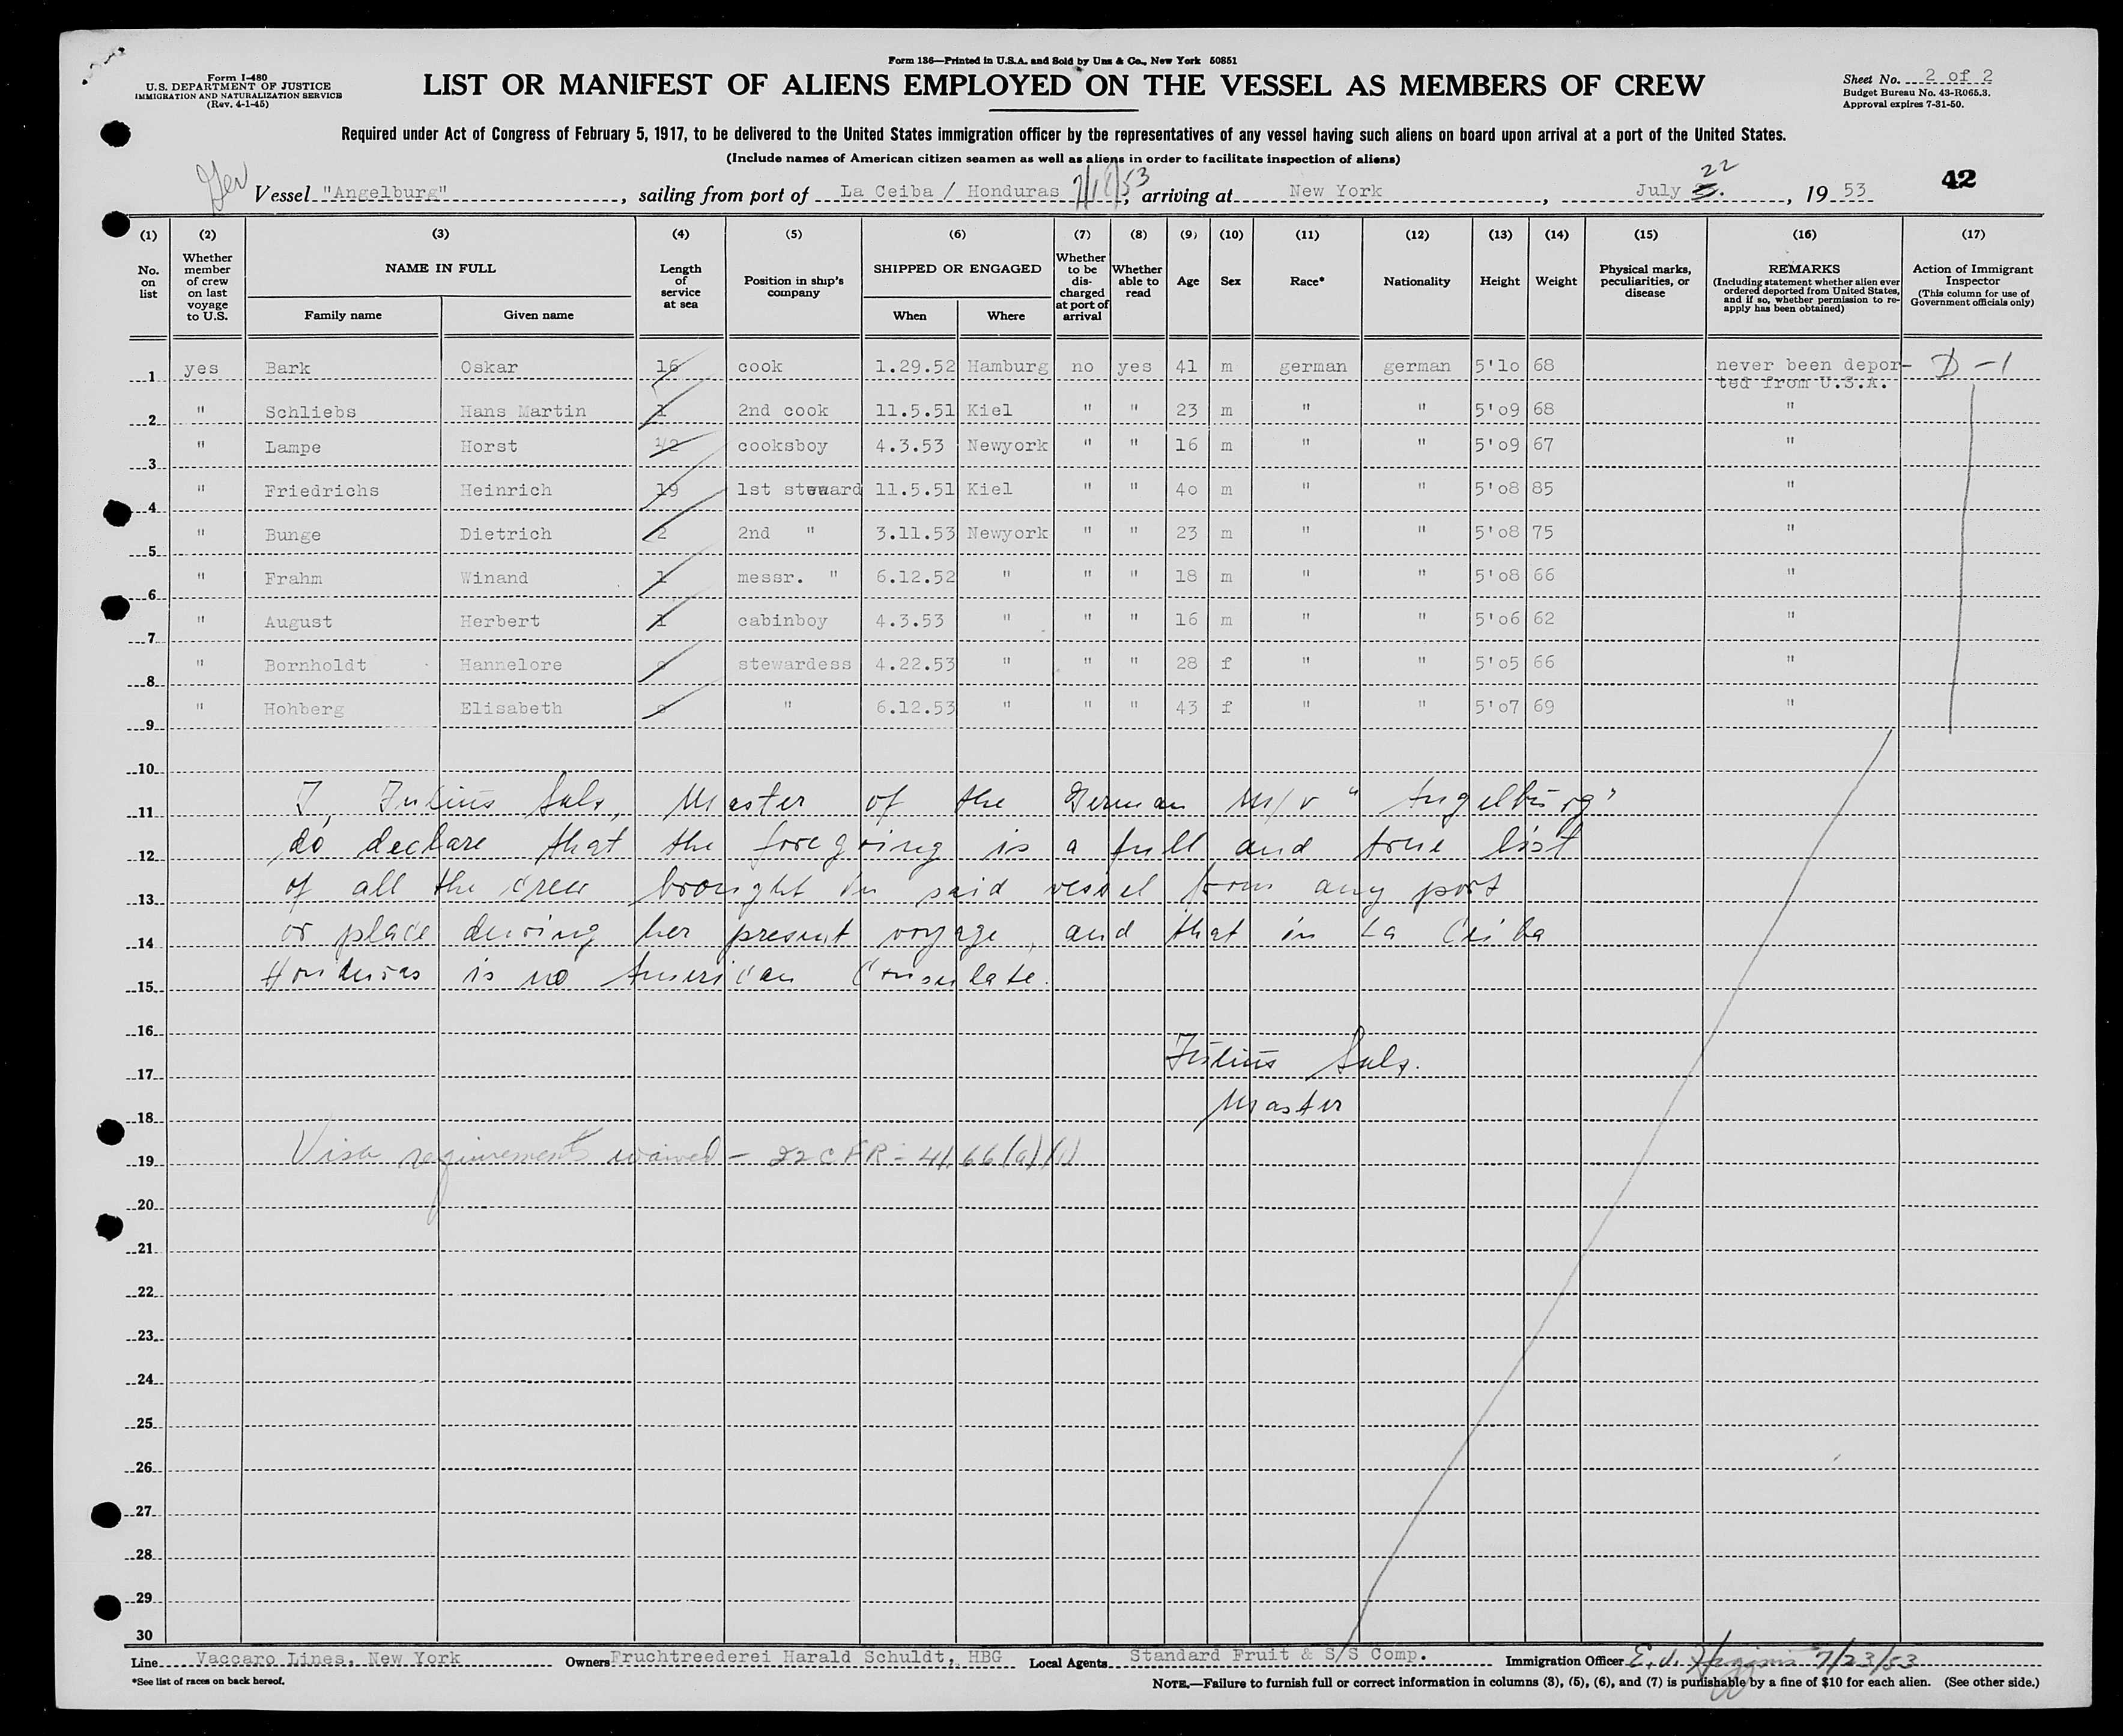 Form 136—Printed in U.S.A. and Sold by Unz & Co., New York 50851
Form I-480
U.S. DEPARTMENT OF JUSTICE
IMMIGRATION AND NATURALIZATION SERVICE
(Rev. 4-1-45)
LIST OR MANIFEST OF ALIENS EMPLOYED ON THE VESSEL AS MEMBERS OF CREW
Sheet No. 2 of 2
Budget Bureau No. 43-R065.3.
Approval expires 7-31-50.
Required under Act of Congress of February 5, 1917, to be delivered to the United States immigration officer by the representatives of any vessel having such aliens on board upon arrival at a port of the United States.
(Include names of American citizen seamen as well as aliens in order to facilitate inspection of aliens)
42
Ger Vessel "Angelburg", sailing from port of La Ceiba / Honduras, arriving at New York, July 22, 1953
(1) (2) (3) (4) (5) (6) (7) (8) (9) (10) (11) (12) (13) (14) (15) (16) (17)
No. on list
Whether member of crew on last voyage to U.S.
NAME IN FULL
Family name
Given name
Length of service at sea
Position in ship's company
SHIPPED OR ENGAGED
When
Where
Whether to be discharged at port of arrival
Whether able to read
Age
Sex
Race*
Nationality
Height
Weight
Physical marks, peculiarities, or disease
REMARKS
(Including statement whether alien ever ordered deported from United States, and if so, whether permission to re-apply has been obtained)
Action of Immigrant Inspector
(This column for use of Government officials only)
1 yes Bark Oskar 16 cook 1.29.52 Hamburg no yes 41 m german german 5'10 68 never been depor- D-1
ted from U.S.A.
2 " Schliebs Hans Martin 1 2nd cook 11.5.51 Kiel " " 23 m " " 5'09 68 "
3 " Lampe Horst 1/2 cooksboy 4.3.53 Newyork " " 16 m " " 5'09 67 "
4 " Friedrichs Heinrich 19 1st steward 11.5.51 Kiel " " 40 m " " 5'08 85 "
5 " Bunge Dietrich 2 2nd " 3.11.53 Newyork " " 23 m " " 5'08 75 "
6 " Frahm Winand 1 messr. " 6.12.52 " " " 18 m " " 5'08 66 "
7 " August Herbert 1 cabinboy 4.3.53 " " " 16 m " " 5'06 62 "
8 " Bornholdt Hannelore stewardess 4.22.53 " " " 28 f " " 5'05 66 "
9 " Hohberg Elisabeth " 6.12.53 " " " 43 f " " 5'07 69 "
10
11 I, Julius Suls, Master of the German M/V "Angelburg"
12 do declare that the foregoing is a full and true list
13 of all the crew brought in said vessel from any port
14 or place during her present voyage, and that in La Ceiba
15 Honduras is no American Consulate.
16
17 Julius Suls.
18 Master
19 Visa requirements waived - 22 CFR - 41.66(a)(1)
20
21
22
23
24
25
26
27
28
29
30
Line Vaccaro Lines, New York Owners Fruchtreederei Harald Schuldt, HBG Local Agents Standard Fruit & S/S Comp. Immigration Officer E. J. Higgins 7/23/53
*See list of races on back hereof.
NOTE.—Failure to furnish full or correct information in columns (3), (5), (6), and (7) is punishable by a fine of $10 for each alien. (See other side.)